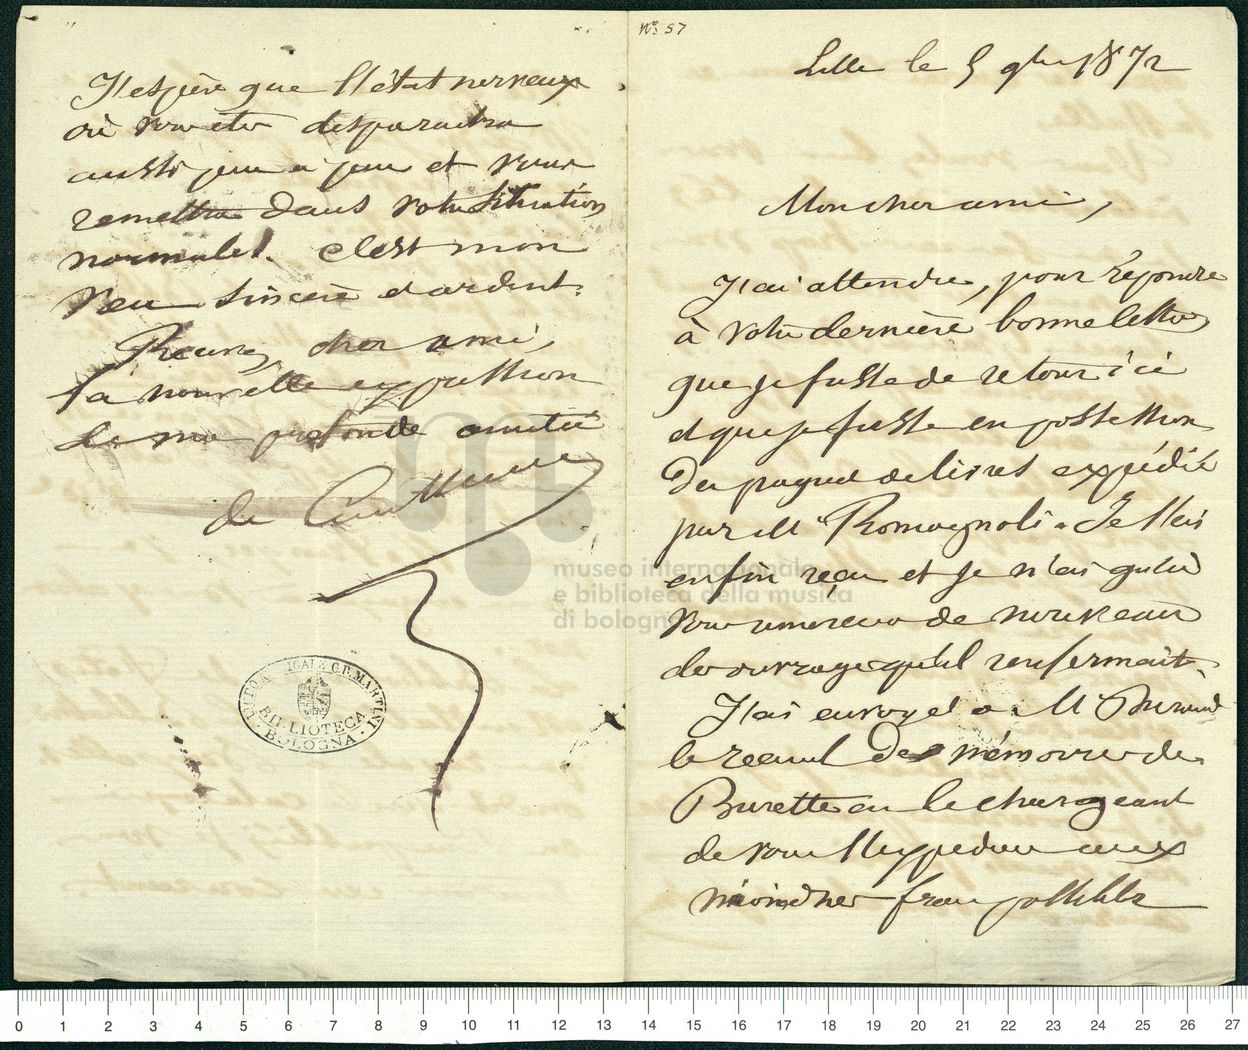 No 57
Lille le 5 9bre 1872
Mon cher ami,
J'ai attendu, pour répondre
à votre dernière bonne lettre
que je fusse de retour ici
et que je fusse en possession
du paquet de livres expédié
par Mr Romagnoli. Je l'ai
enfin reçu et je n'ai qu'à
vous remercier de nouveau
des ouvrages qu'il renfermait.
J'ai envoyé à Mr Durand
le recueil des mémoires de
Burette en le chargeant
de vous l'expédier aux
moindres frais possibles
J'espère que l'état nerveux
où vous êtes disparaitra
aussi peu à peu et vous
remettra dans votre situation
normale. C'est mon
vœu sincère et ardent.
Recevez, cher ami,
la nouvelle expression
de ma profonde amitié
de Coussemaker
LICEO MUSICALE G.B. MARTINI
BIBLIOTECA
BOLOGNA
museo internazionale
e biblioteca della musica
di bologna
0 1 2 3 4 5 6 7 8 9 10 11 12 13 14 15 16 17 18 19 20 21 22 23 24 25 26 27